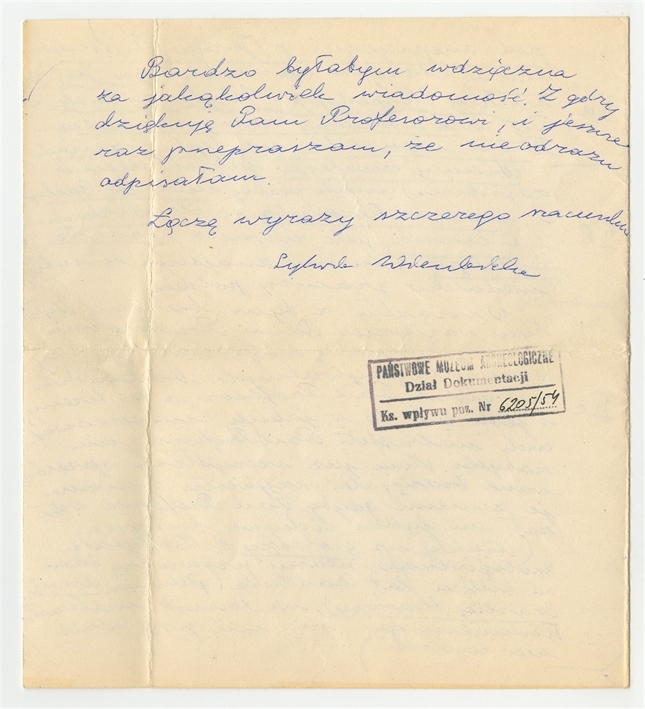 Bardzo byłabym wdzięczna
za jakąkolwiek wiadomość. Z góry
dziękuję Panu Profesorowi, i jeszcze
raz przepraszam, że nie odrazu
odpisałam.
Łączę wyrazy szczerego szacunku
PAŃSTWOWE MUZEUM ARCHEOLOGICZNE
Dział Dokumentacji
Ks. wpływu poz. Nr 6205/54